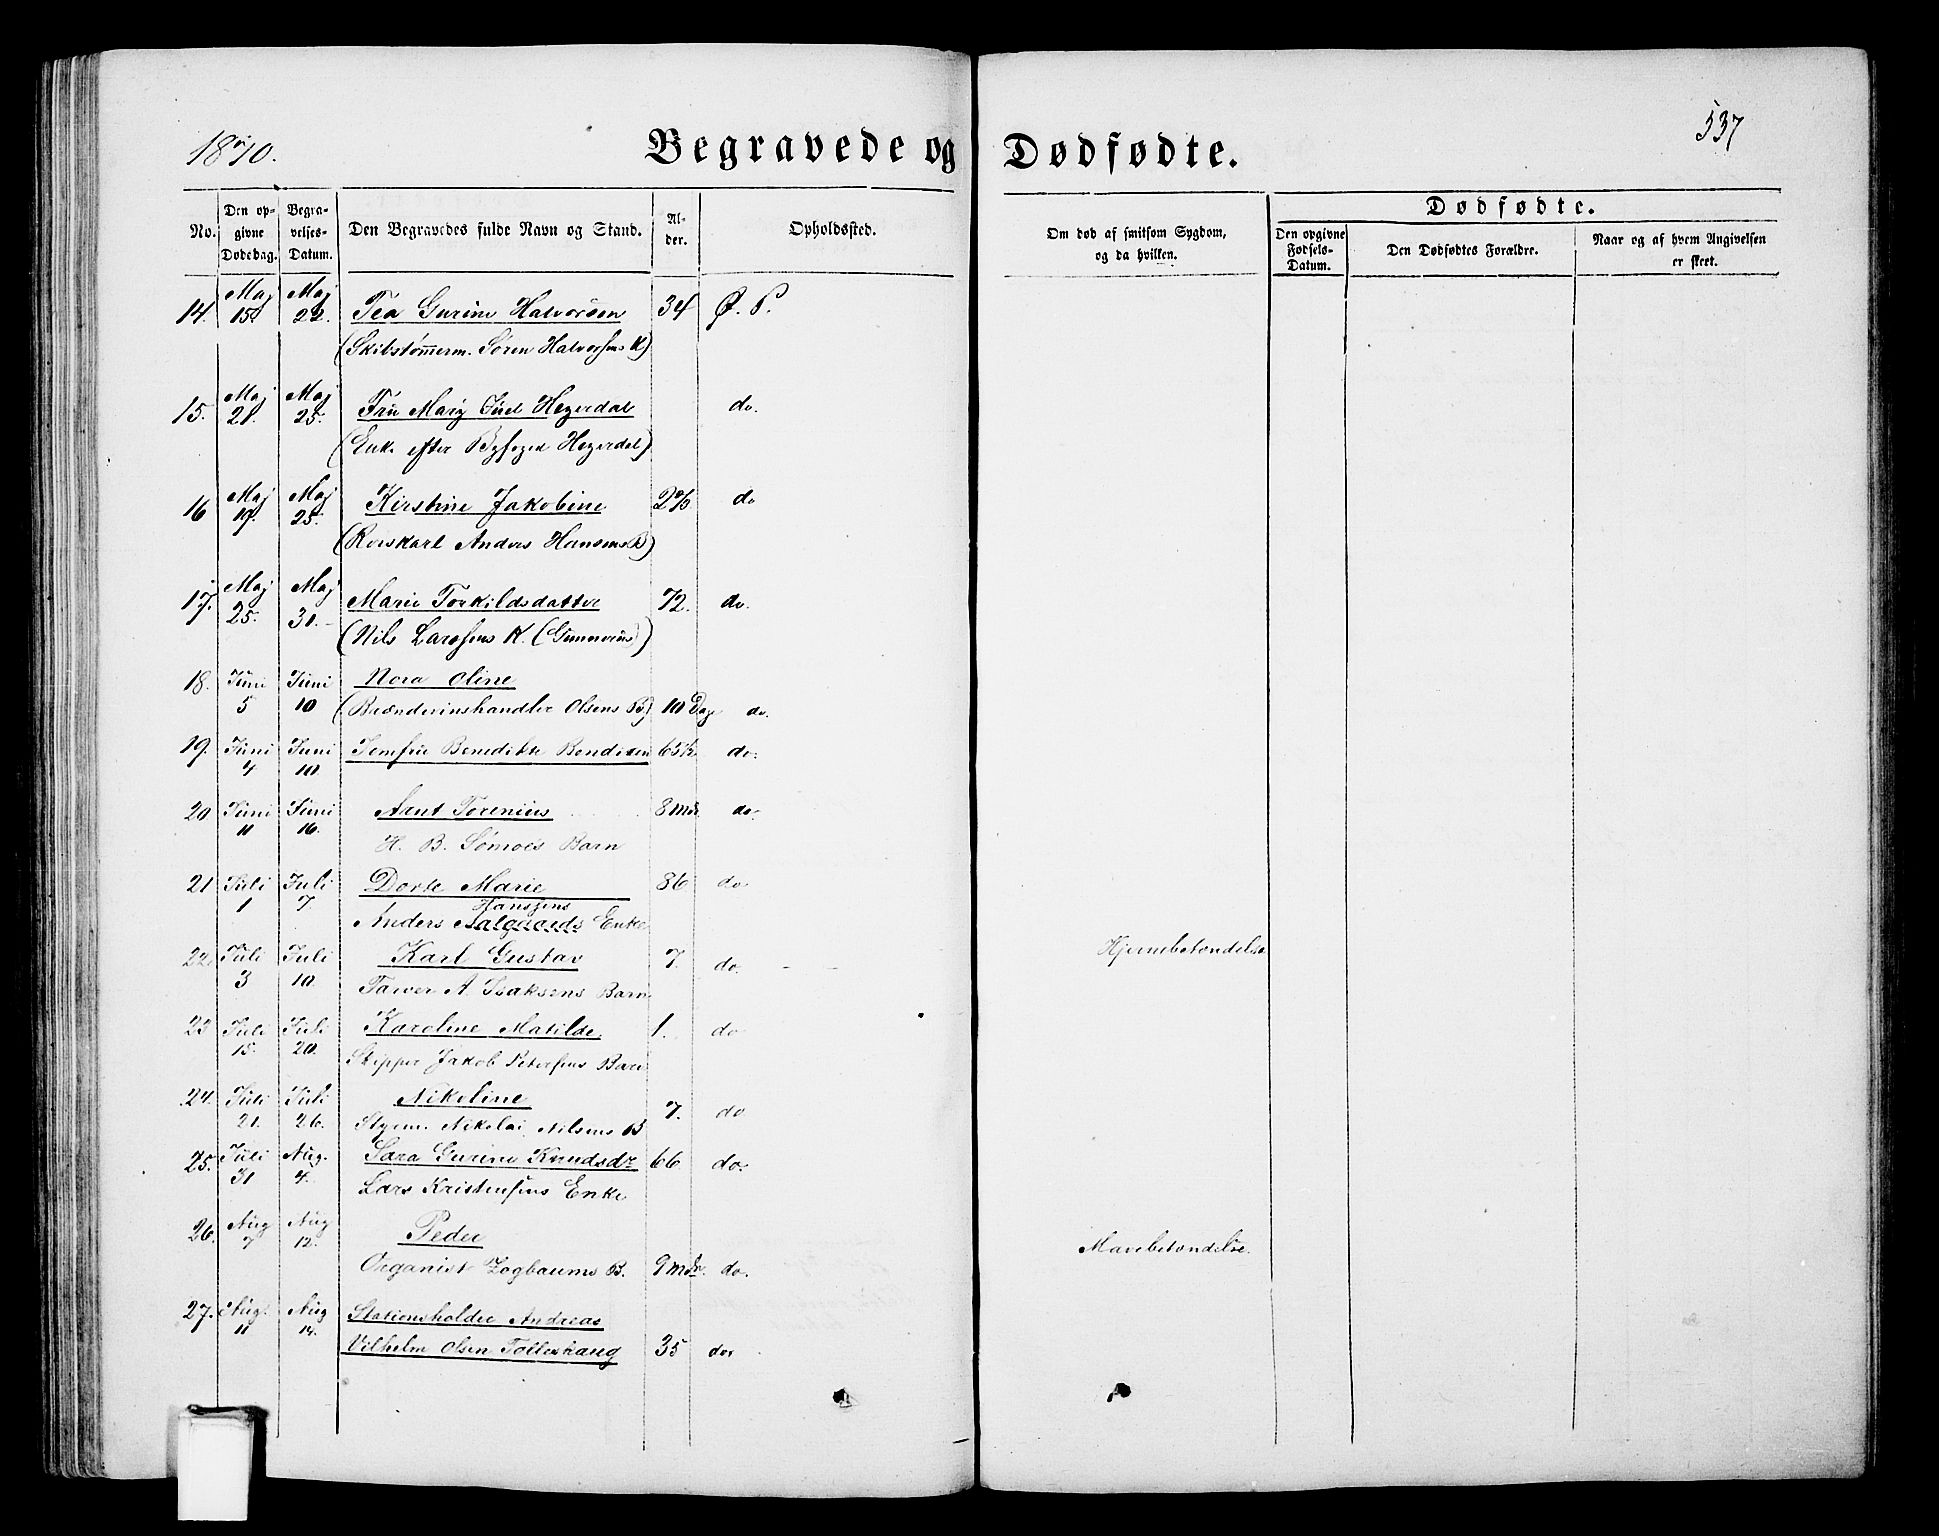 1870.
Begravede og Dødfødte.
537
No.
Den opgivne Dødedag.
Begravelses-Datum.
Den Begravedes fulde Navn og Stand.
Alder.
Opholdssted.
Om død af smitsom Sygdom, og da hvilken.
Dødfødte.
Den opgivne Fødsels-Datum.
Den Dødfødtes Forældre.
Naar og af hvem Angivelsen er skeet.
14. Maj 15. Maj 22. Tea Gurine Halvorsen 34 Ø. P.
(Skibstømmerm. Søren Halvorsens K)
15. Maj 21. Maj 25. Fru Mary Juel Hegerdal do.
(Enke efter Byfoged Hegerdal)
16 Maj 19. Maj 25. Kirstine Jakobine do
(Rorskarl Anders Hansens B)
17. Maj 25. Maj 30. Marie Torkildsdatter 72. do.
(Nils Larsens K. (Gunnerius)
18. Juni 5 Juni 10 Nora Oline
(Brændevinshandler Olsens B) 10 Dage do.
19. Juni 4 Juni 10. Jomfru Benedikte Bendixen 65 do.
20 Juni 11 Juni 16. Arnt Torenius 8 Mdr. do.
H. B. Sømoes Barn
21 Juli 1 Juli 7. Dorte Marie 86 do
Hanssens
Anders Aalgaards Enke
22. Juli 3 Juli 10. Karl Gustav 7. do. Hjernebetændelse
Farver A. Isaksens Barn
23 Juli 15. Juli 20. Karoline Matilde. 1. do
Skipper Jakob Petersens Barn
24. Juli 21. Juli 26. Nikoline 7. do
Styrm. Nikolai Nilsens B
25. Juli 31 Aug. 4. Sara Gurine Knudsdr 66 do.
Lars Kristensens Enke
26. Aug 7 Aug 12. Peder Mavebetændelse.
Organist Zogbaums B. 9 Mdr. do.
27. Aug. 11 Aug 14. Stationsholder Andreas
Vilhelm Olsen Tolleshaug 35 do.